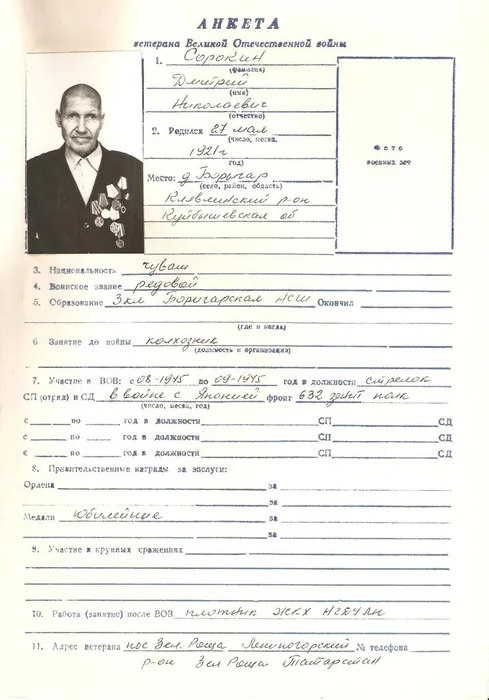 АНКЕТА
ветерана Великой Отечественной войны
1. Сорокин
(фамилия)
Дмитрий
(имя)
Николаевич
(отчество)
2. Родился 27 мая
(число, месяц,
1921 г
год)
Место: д Боригар
(село, район, область)
Клявлинский р-он
Куйбышевская об
Фото
военных лет
3. Национальность чуваш
4. Воинское звание редовой
5. Образование 3 кл Боригарская НСШ Окончил
(где и когда)
6 Занятие до войны колхозник
(должность и организация)
7. Участие в ВОВ: с 08-1945 по 09-1945 год в должности стрелок
СП (отряд) и СД в войне с Японией фронт 632 зенит полк
(число, месяц, год)
с по год в должности СП СД
с по год в должности СП СД
с по год в должности СП СД
8. Правительственные награды за заслуги:
Ордена за
за
Медали Юбилейные за
за
9. Участие в крупных сражениях
10. Работа (занятие) после ВОВ плотник ЖКХ НГДУЛН
11. Адрес ветерана пос Зел. Роща Лениногорский № телефона
р-он Зел Роща Татарстан